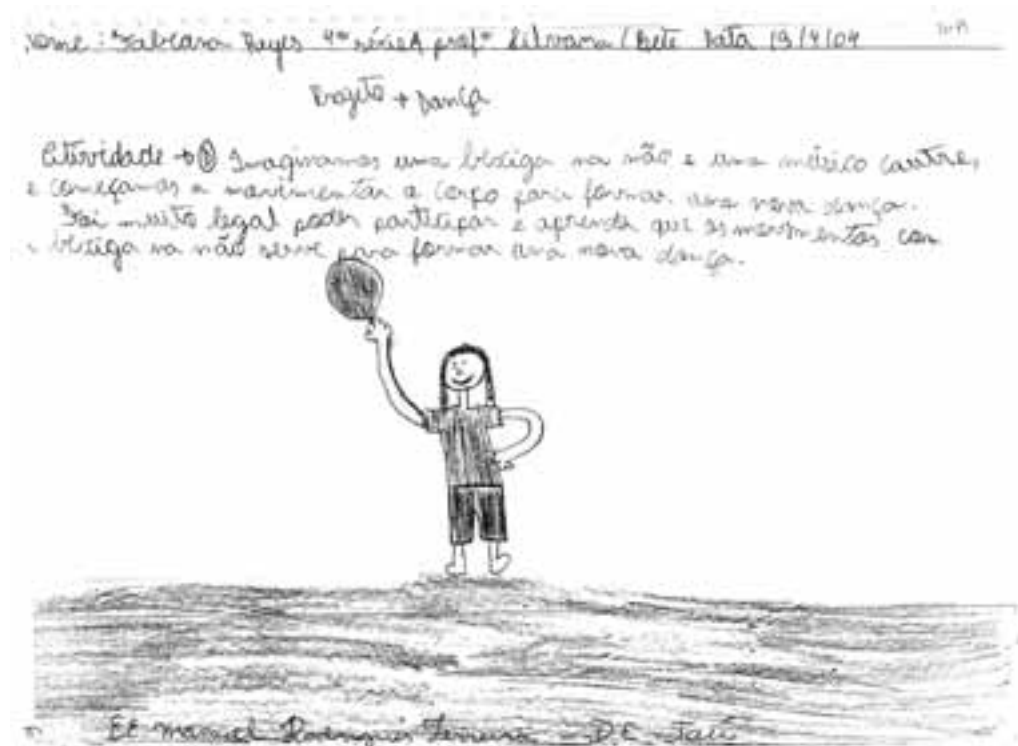 Nome: Fabiana Reyes 4ª série A profª Silvana / Bete Data 19/4/04
Projeto → Dança
Atividade → ① Imaginamos uma bexiga na mão e uma música
e começamos a movimentar o corpo para formar uma nova dança.
Foi muito legal poder participar e aprender que os movimentos com
a bexiga na mão serve para formar uma nova dança.
EE Manoel Rodrigues Ferreira - D.E. Jaú